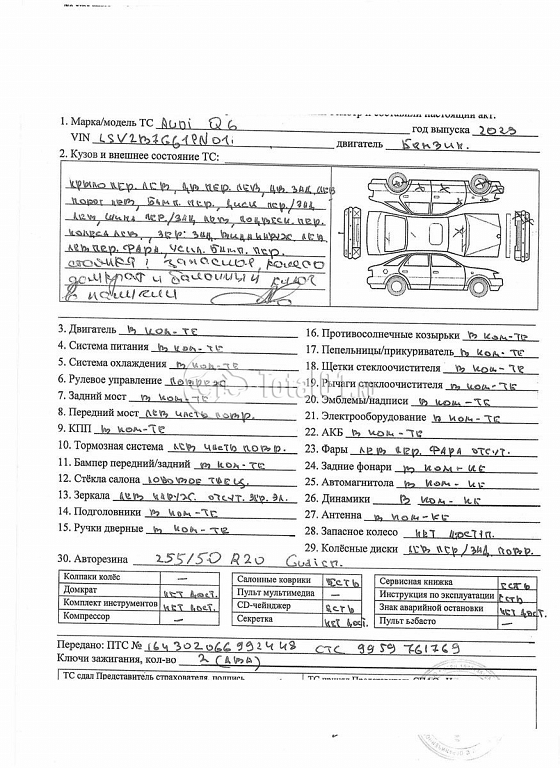 1. Марка/модель ТС Audi Q6 год выпуска 2023
VIN двигатель Бензин.
2. Кузов и внешнее состояние ТС:
крыло пер. лев, дв пер. лев, дв зад. лев
порог лев, бамп. пер., диск пер./зад
лев, шина пер./зад лев, подвеск. пер.
колеса лев, зер. зад. вида наруж. лев
лев пер. фара, усил. бамп. пер.
запасное колесо
домкрат и балонный ключ
в наличии
3. Двигатель в ком-те
4. Система питания в ком-те
5. Система охлаждения в ком-те
6. Рулевое управление
7. Задний мост в ком-те
8. Передний мост лев часть повр.
9. КПП в ком-те
10. Тормозная система лев часть повр.
11. Бампер передний/задний в ком-те
12. Стёкла салона лобовое
13. Зеркала лев наруж. отсут. зер. эл.
14. Подголовники в ком-те
15. Ручки дверные в ком-те
16. Противосолнечные козырьки в ком-те
17. Пепельницы/прикуриватель в ком-те
18. Щетки стеклоочистителя в ком-те
19. Рычаги стеклоочистителя в ком-те
20. Эмблемы/надписи в ком-те
21. Электрооборудование в ком-те
22. АКБ в ком-те
23. Фары лев пер. фара отсут.
24. Задние фонари в ком-ке
25. Автомагнитола в ком-ке
26. Динамики в ком-ке
27. Антенна в ком-ке
28. Запасное колесо нет доступ.
29. Колёсные диски лев пер/зад повр.
30. Авторезина 255/50 R20
Колпаки колёс —
Домкрат нет дост.
Комплект инструментов нет дост.
Компрессор —
Салонные коврики есть
Пульт мультимедиа —
CD-чейнджер есть
Секретка нет дост.
Сервисная книжка есть
Инструкция по эксплуатации есть
Знак аварийной остановки нет дост.
Пульт ь/басто —
Передано: ПТС № 164302066992448 СТС 9959 761769
Ключи зажигания, кол-во 2 (два)
ТС сдал Представитель страхователя, подпись